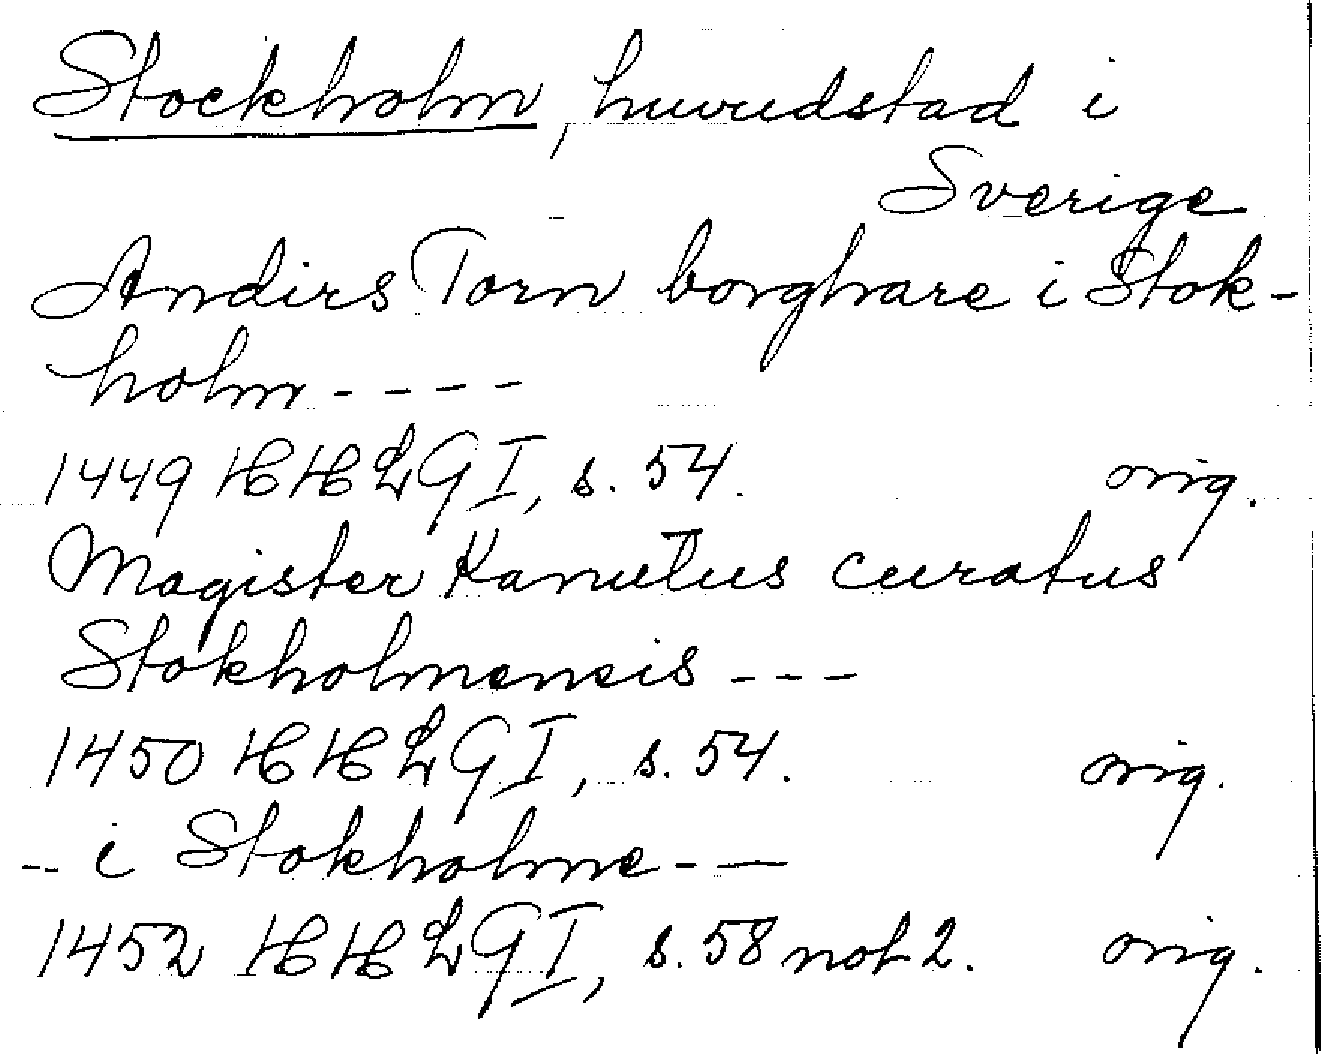 Stockholm, huvudstad i
Sverige
Andirs Torn borghare i Stok-
holm ----
1449 HHLGI, s. 54. orig.
Magister Kanutus curatus
Stokholmensis ---
1450 HHLGI, s. 54. orig.
-- i Stokholme --
1452 HHLGI, s. 58 not 2. orig.